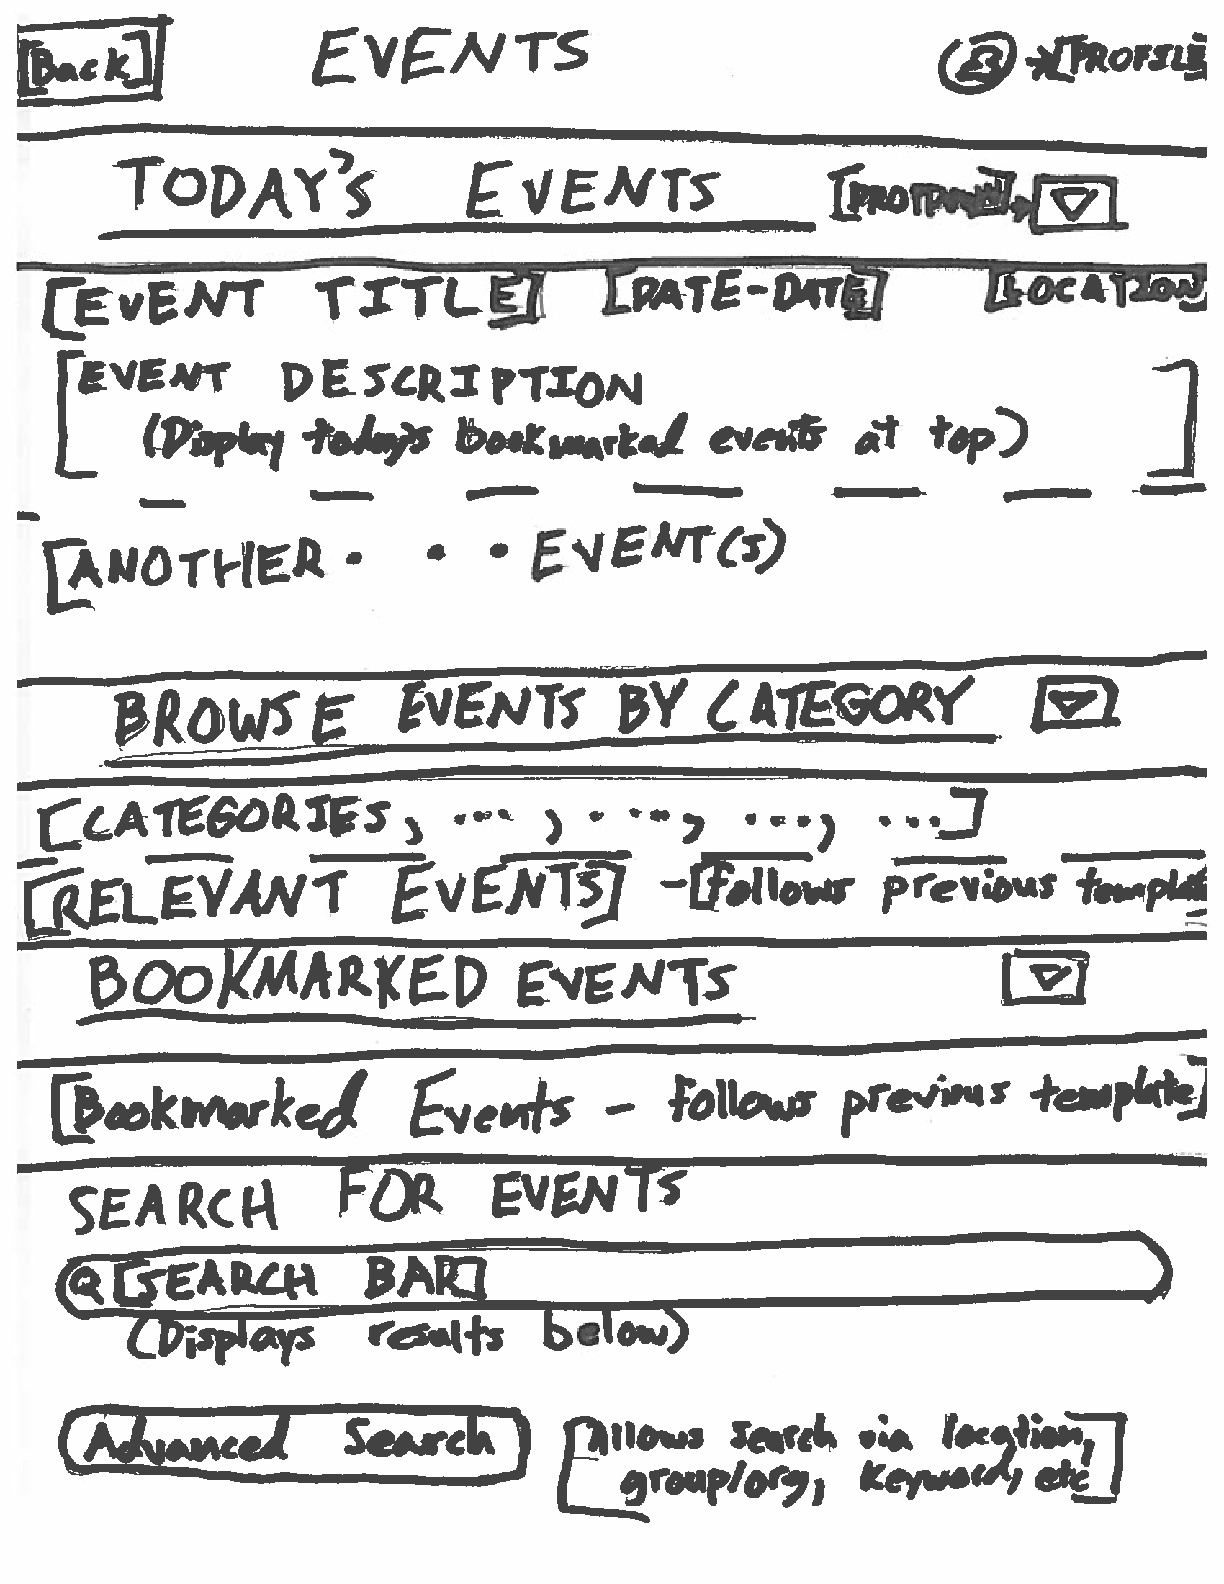 [Back] EVENTS [PROFILE
TODAY'S EVENTS
[EVENT TITLE] [DATE-DATE] [LOCATION
[EVENT DESCRIPTION
(Display today's bookmarked events at top) ]
[ANOTHER . . . EVENT(S)
BROWSE EVENTS BY CATEGORY
[CATEGORIES, ... , ...., ...., ...]
[RELEVANT EVENTS] -[follows previous template
BOOKMARKED EVENTS
[Bookmarked Events - follows previous template]
SEARCH FOR EVENTS
[SEARCH BAR]
(Displays results below)
Advanced Search [Allows search via location,
group/org, keyword, etc]